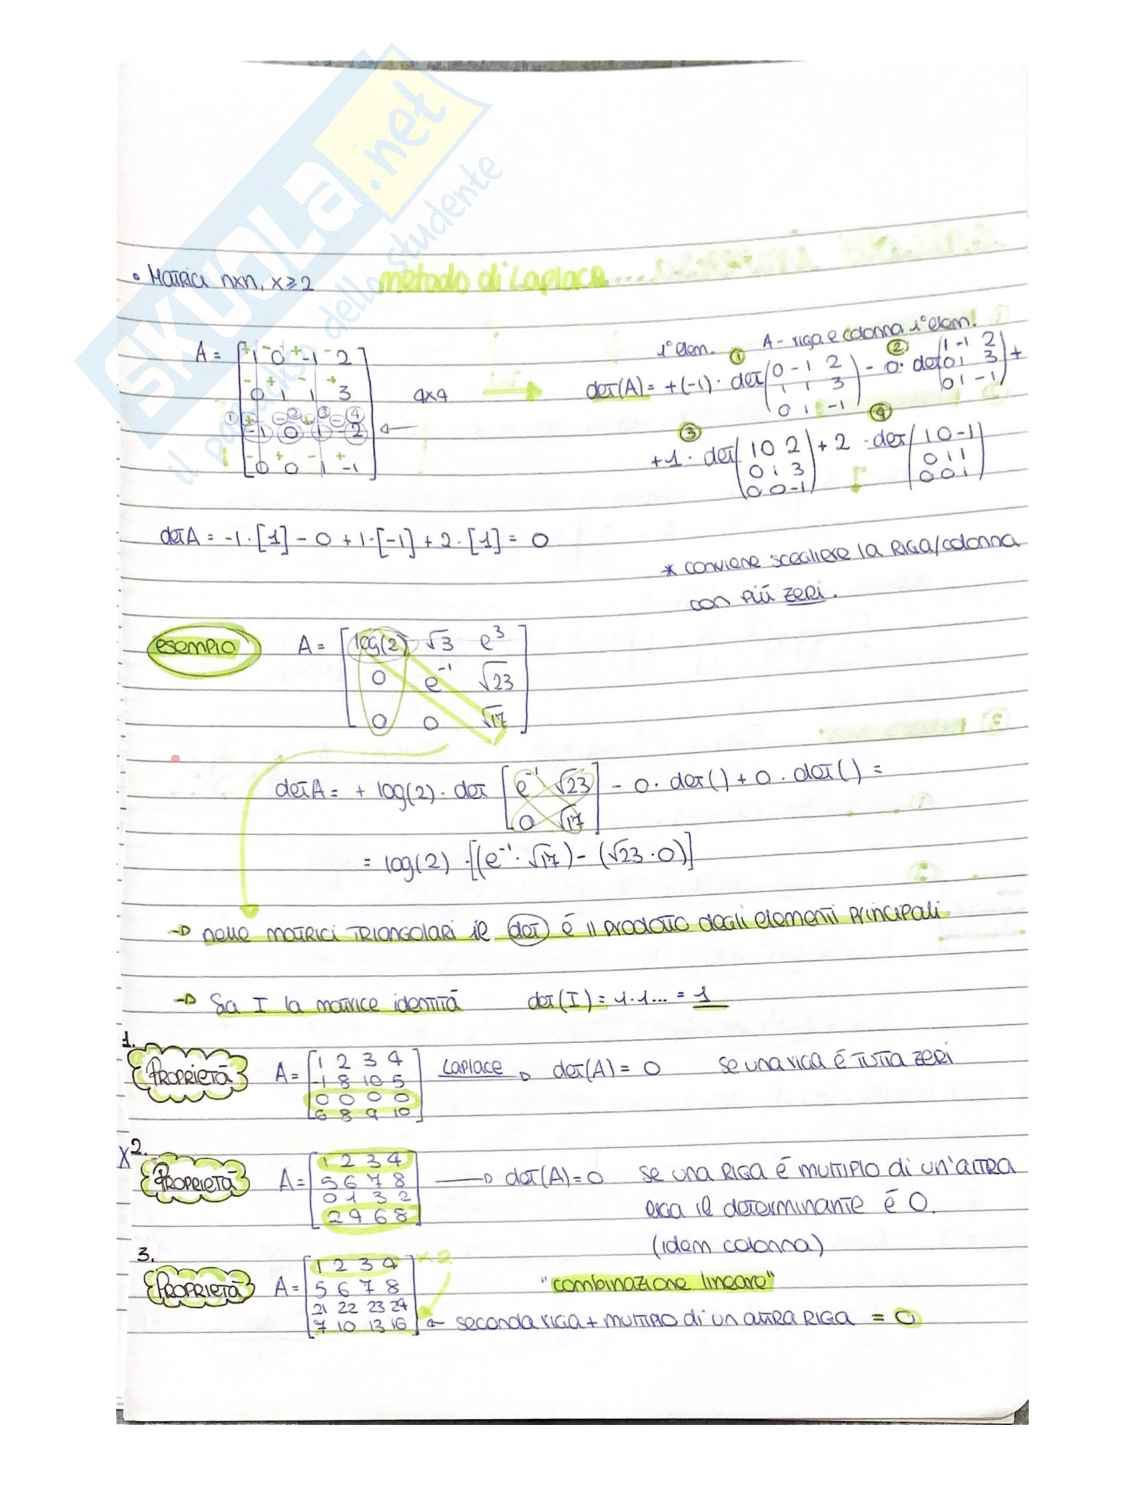 SKUOLA.net
il paradiso dello studente
• Matrici nxn, x≥2 metodo di Laplace....
1° elem. A- riga e colonna 1° elem.
A = [1 0 -1 2
0 1 1 3
-1 0 1 -2
0 0 1 -1] 4x4
① ② ③ ④
det(A) = +(-1)· det(0 -1 2
1 1 3
0 1 -1) - 0· det(1 -1 2
0 1 3
0 1 -1) +
+1· det(1 0 2
0 1 3
0 0 -1) + 2 · det(1 0 -1
0 1 1
0 0 1)
det A = -1·[1] - 0 + 1·[-1] + 2·[1] = 0
* conviene scegliere la riga/colonna
con più zeri.
esempio A = [log(2) √3 e³
0 e⁻¹ √23
0 0 √17]
det A = + log(2)· det [e⁻¹ √23
0 √17] - 0· det( ) + 0· det( ) =
= log(2) ·[(e⁻¹·√17) - (√23·0)]
→ nelle matrici triangolari il det é il prodotto degli elementi principali
→ Sia I la matrice identità det(I) = 1·1... = 1
1.
Proprietà A = [1 2 3 4
-1 8 10 5
0 0 0 0
6 8 9 10] Laplace → det(A) = 0 se una riga é tutta zeri
x2.
Proprietà A = [1 2 3 4
5 6 7 8
0 1 3 2
2 4 6 8] → det(A) = 0 se una riga é multiplo di un'altra
riga il determinante é 0.
(idem colonna)
3.
Proprietà A = [1 2 3 4
5 6 7 8
21 22 23 24
7 10 13 16] x2
"combinazione lineare"
← seconda riga + multiplo di un altra riga = 0